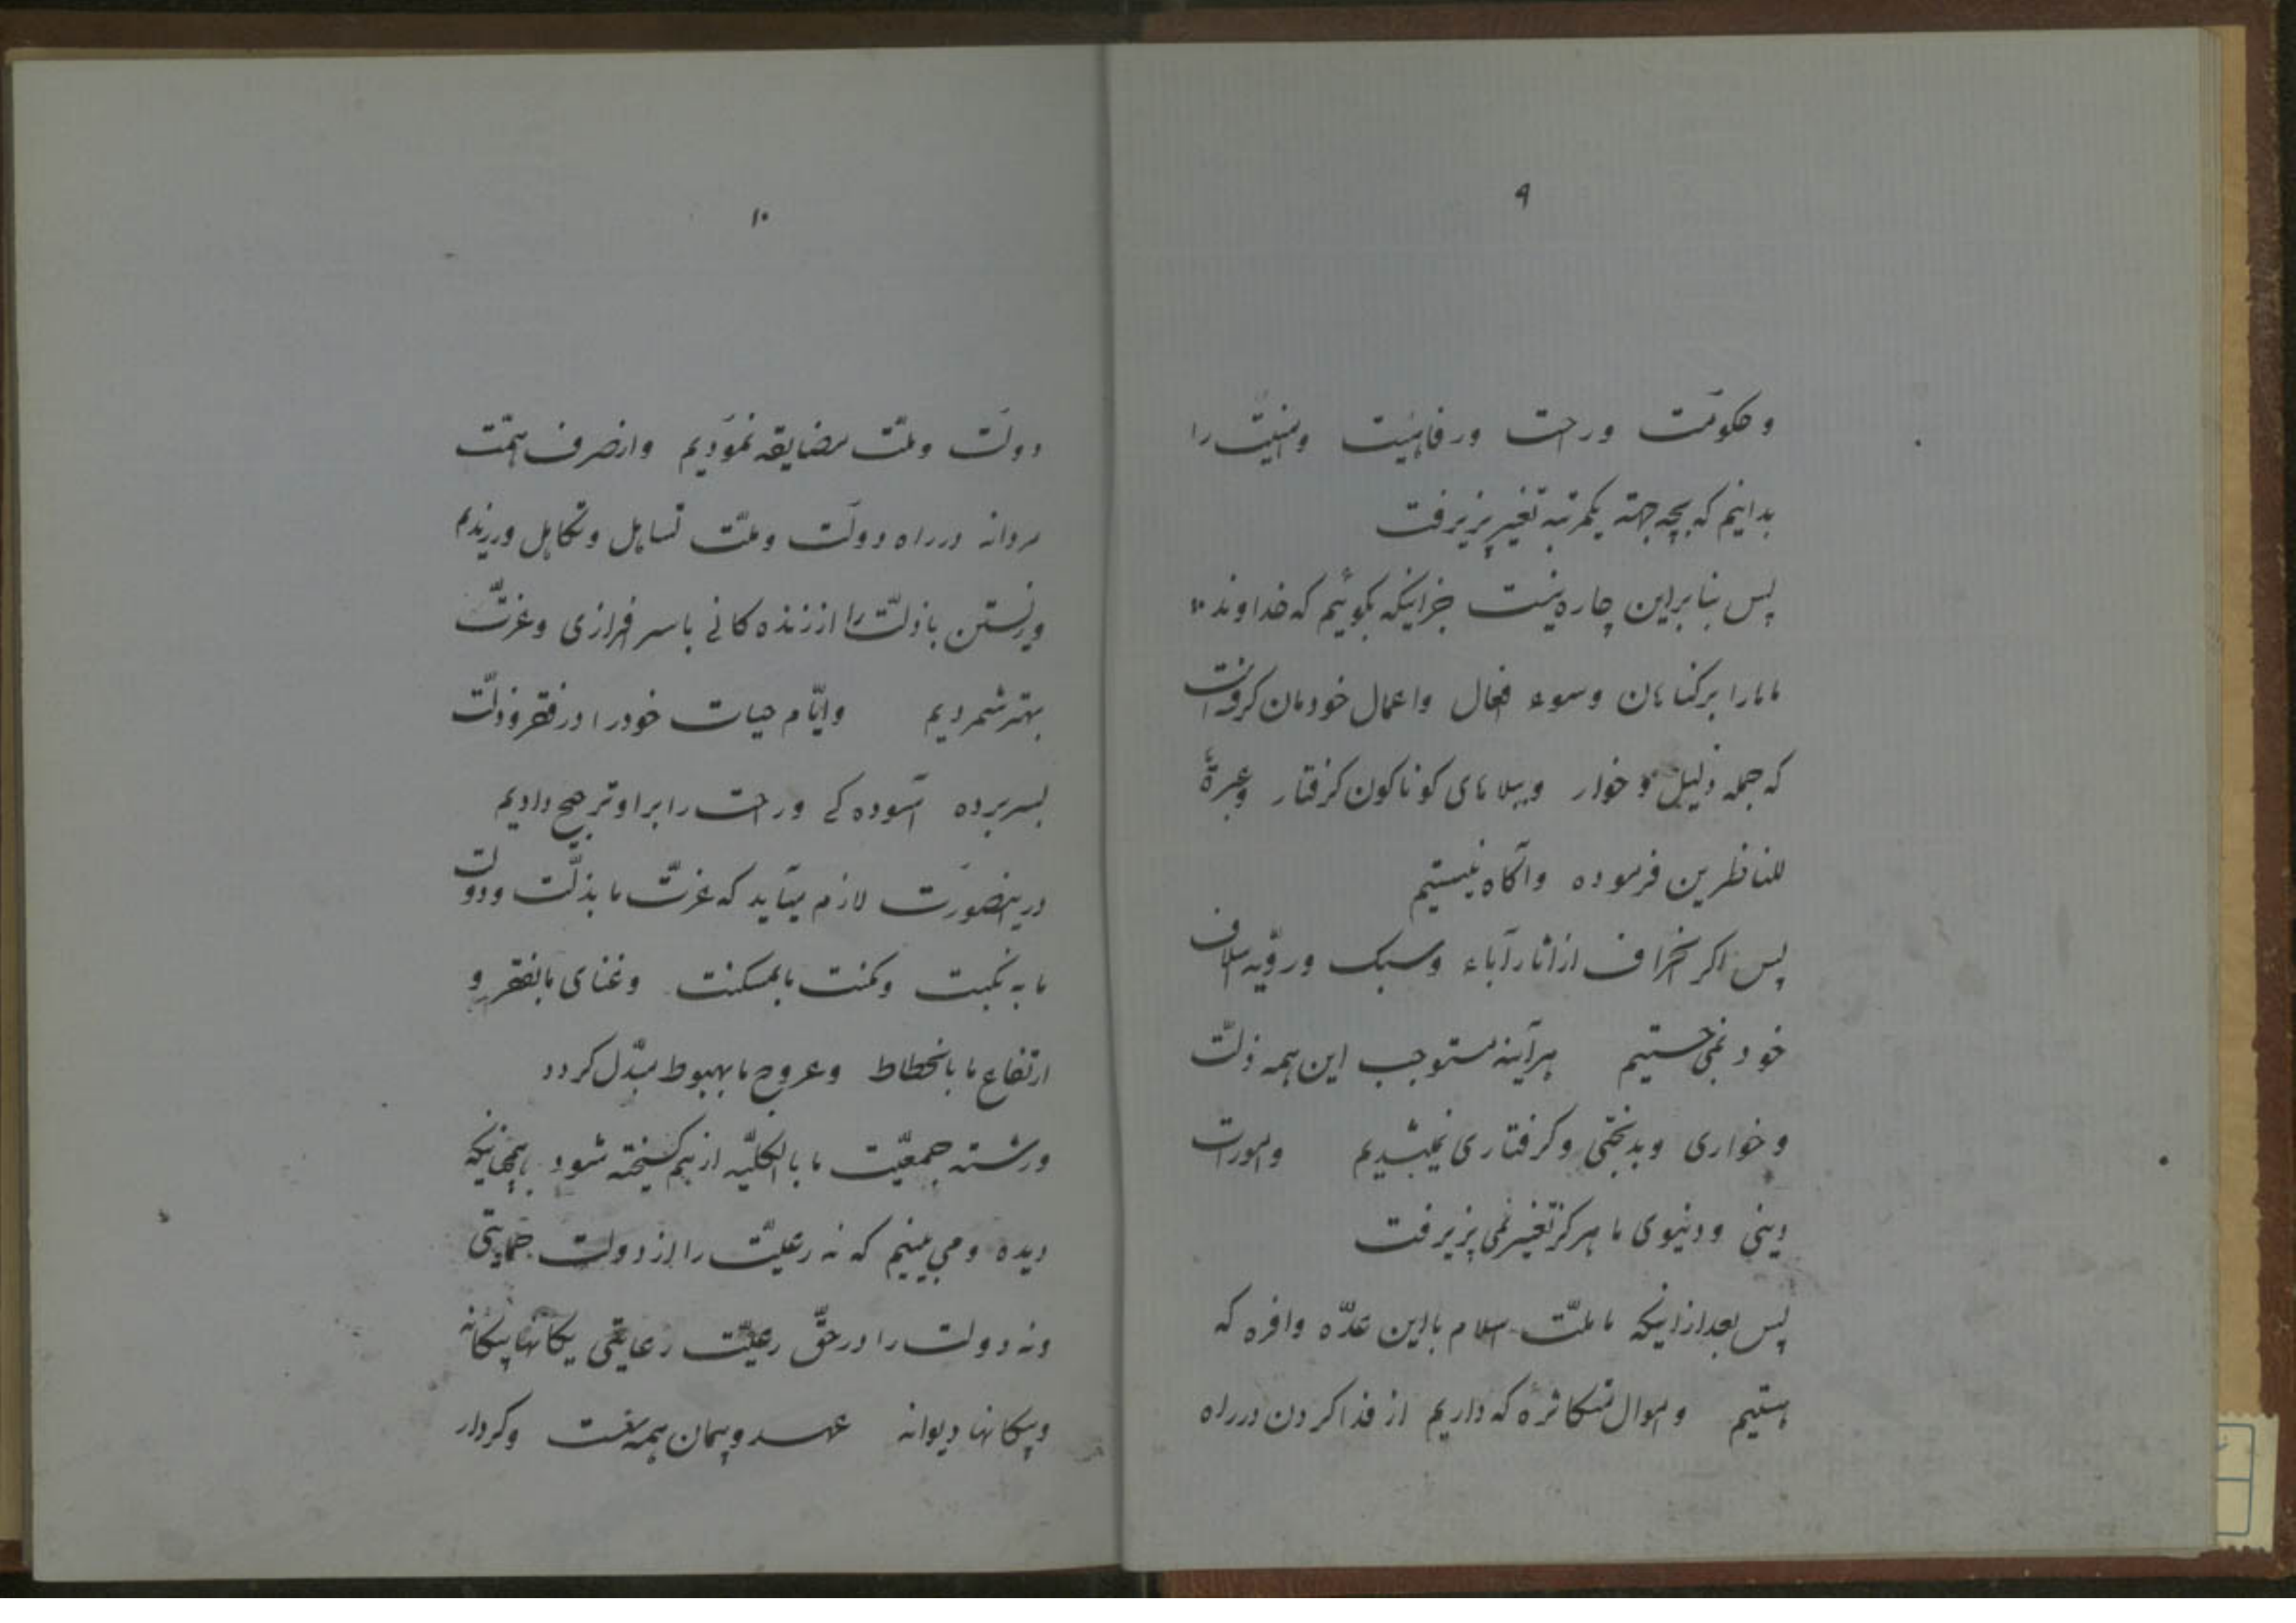 ۹
و حکومت و راحت و رفاهیت و امنیت را
بدانیم که بچه جهته یکمرتبه تغییر پزیرفت
پس بنا براین چاره نیست جز اینکه بگوئیم که خداوند
ماها را بر گناهان و سوء افعال و اعمال خودمان گرفته است
که جمله ذلیل و خوار و ببلاهای گوناگون گرفتار و عبرة
للناظرین فرموده و آگاه نیستیم
پس اگر انحراف از آثار آباء و سبک و رویّه اسلاف
خود نمی‌جستیم هرآینه مستوجب این همه ذلّت
و خواری و بدبختی و گرفتاری نمیشدیم و امورات
دینی و دنیوی ما هرگز تغییر نمی پزیرفت
پس بعد از اینکه ما ملّت اسلام با این عدّه وافره که
هستیم و اموال متکاثرهٔ که داریم از فدا کردن در راه
۱۰
دولت و ملّت مضایقه نمودیم و از صرف همّت
مردانه در راه دولت و ملّت تساهل و تکاهل ورزیدیم
و زیستن با ذلّت را از زنده کانی با سرفرازی و عزّت
بهتر شمردیم و ایّام حیات خود را در فقر و ذلّت
بسر برده آسوده کی و راحت را بر او ترجیح دادیم
در اینصورت لازم میآید که عزّت ما بذلّت و دولت
ما به نکبت و مکنت ما بمسکنت و غنای ما بفقر و
ارتفاع ما بانحطاط و عروج ما بهبوط مبدّل گردد
و رشته جمعیّت ما بالکلیّه از هم گسیخته شود همچنانیکه
دیده و می بینیم که نه رعیّت را از دولت حمایتی
و نه دولت را در حقّ رعیّت رعایتی یگانها بیگانه
و بیگانها دیوانه عهد و پیمان همه سست و کردار